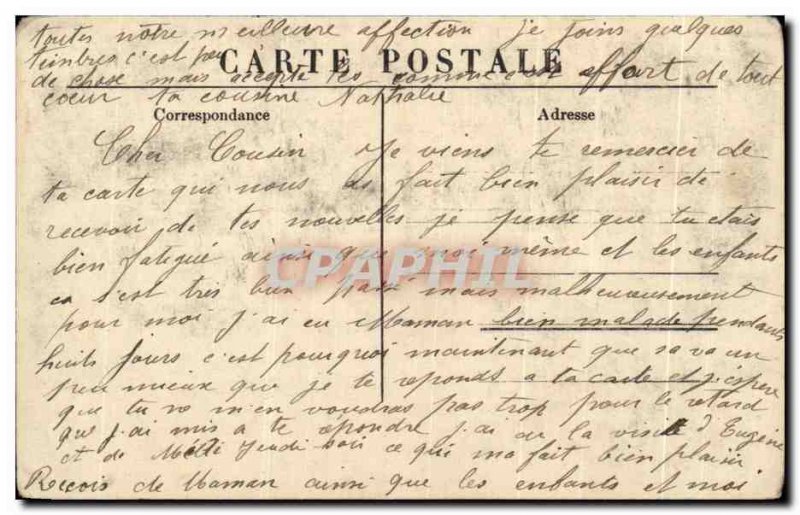 toutes notre meilleure affection je joins quelques
timbres c'est peu
CARTE POSTALE
de chose mais accepte les comme est offert de tout
coeur ta cousine Nathalie
Correspondance
Adresse
Cher Cousin Je viens te remercier de
ta carte qui nous as fait bien plaisir de
recevoir de tes nouvelles je pense que tu etais
bien fatigué ainsi que moi même et les enfants
ca s'est très bien passé mais malheureusement
pour moi j'ai eu Maman bien malade pendants
huits jours c'est pourquoi maintenant que sa va un
peu mieux que je te reponds a ta carte et j'espere
que tu ne m'en voudras pas trop pour le retard
que j'ai mis a te repondre j'ai eu la visite d'Eugéne
et de Jeudi soir ce qui ma fait bien plaisir
Recois de Maman ainsi que les enfants et moi
CPAPHIL